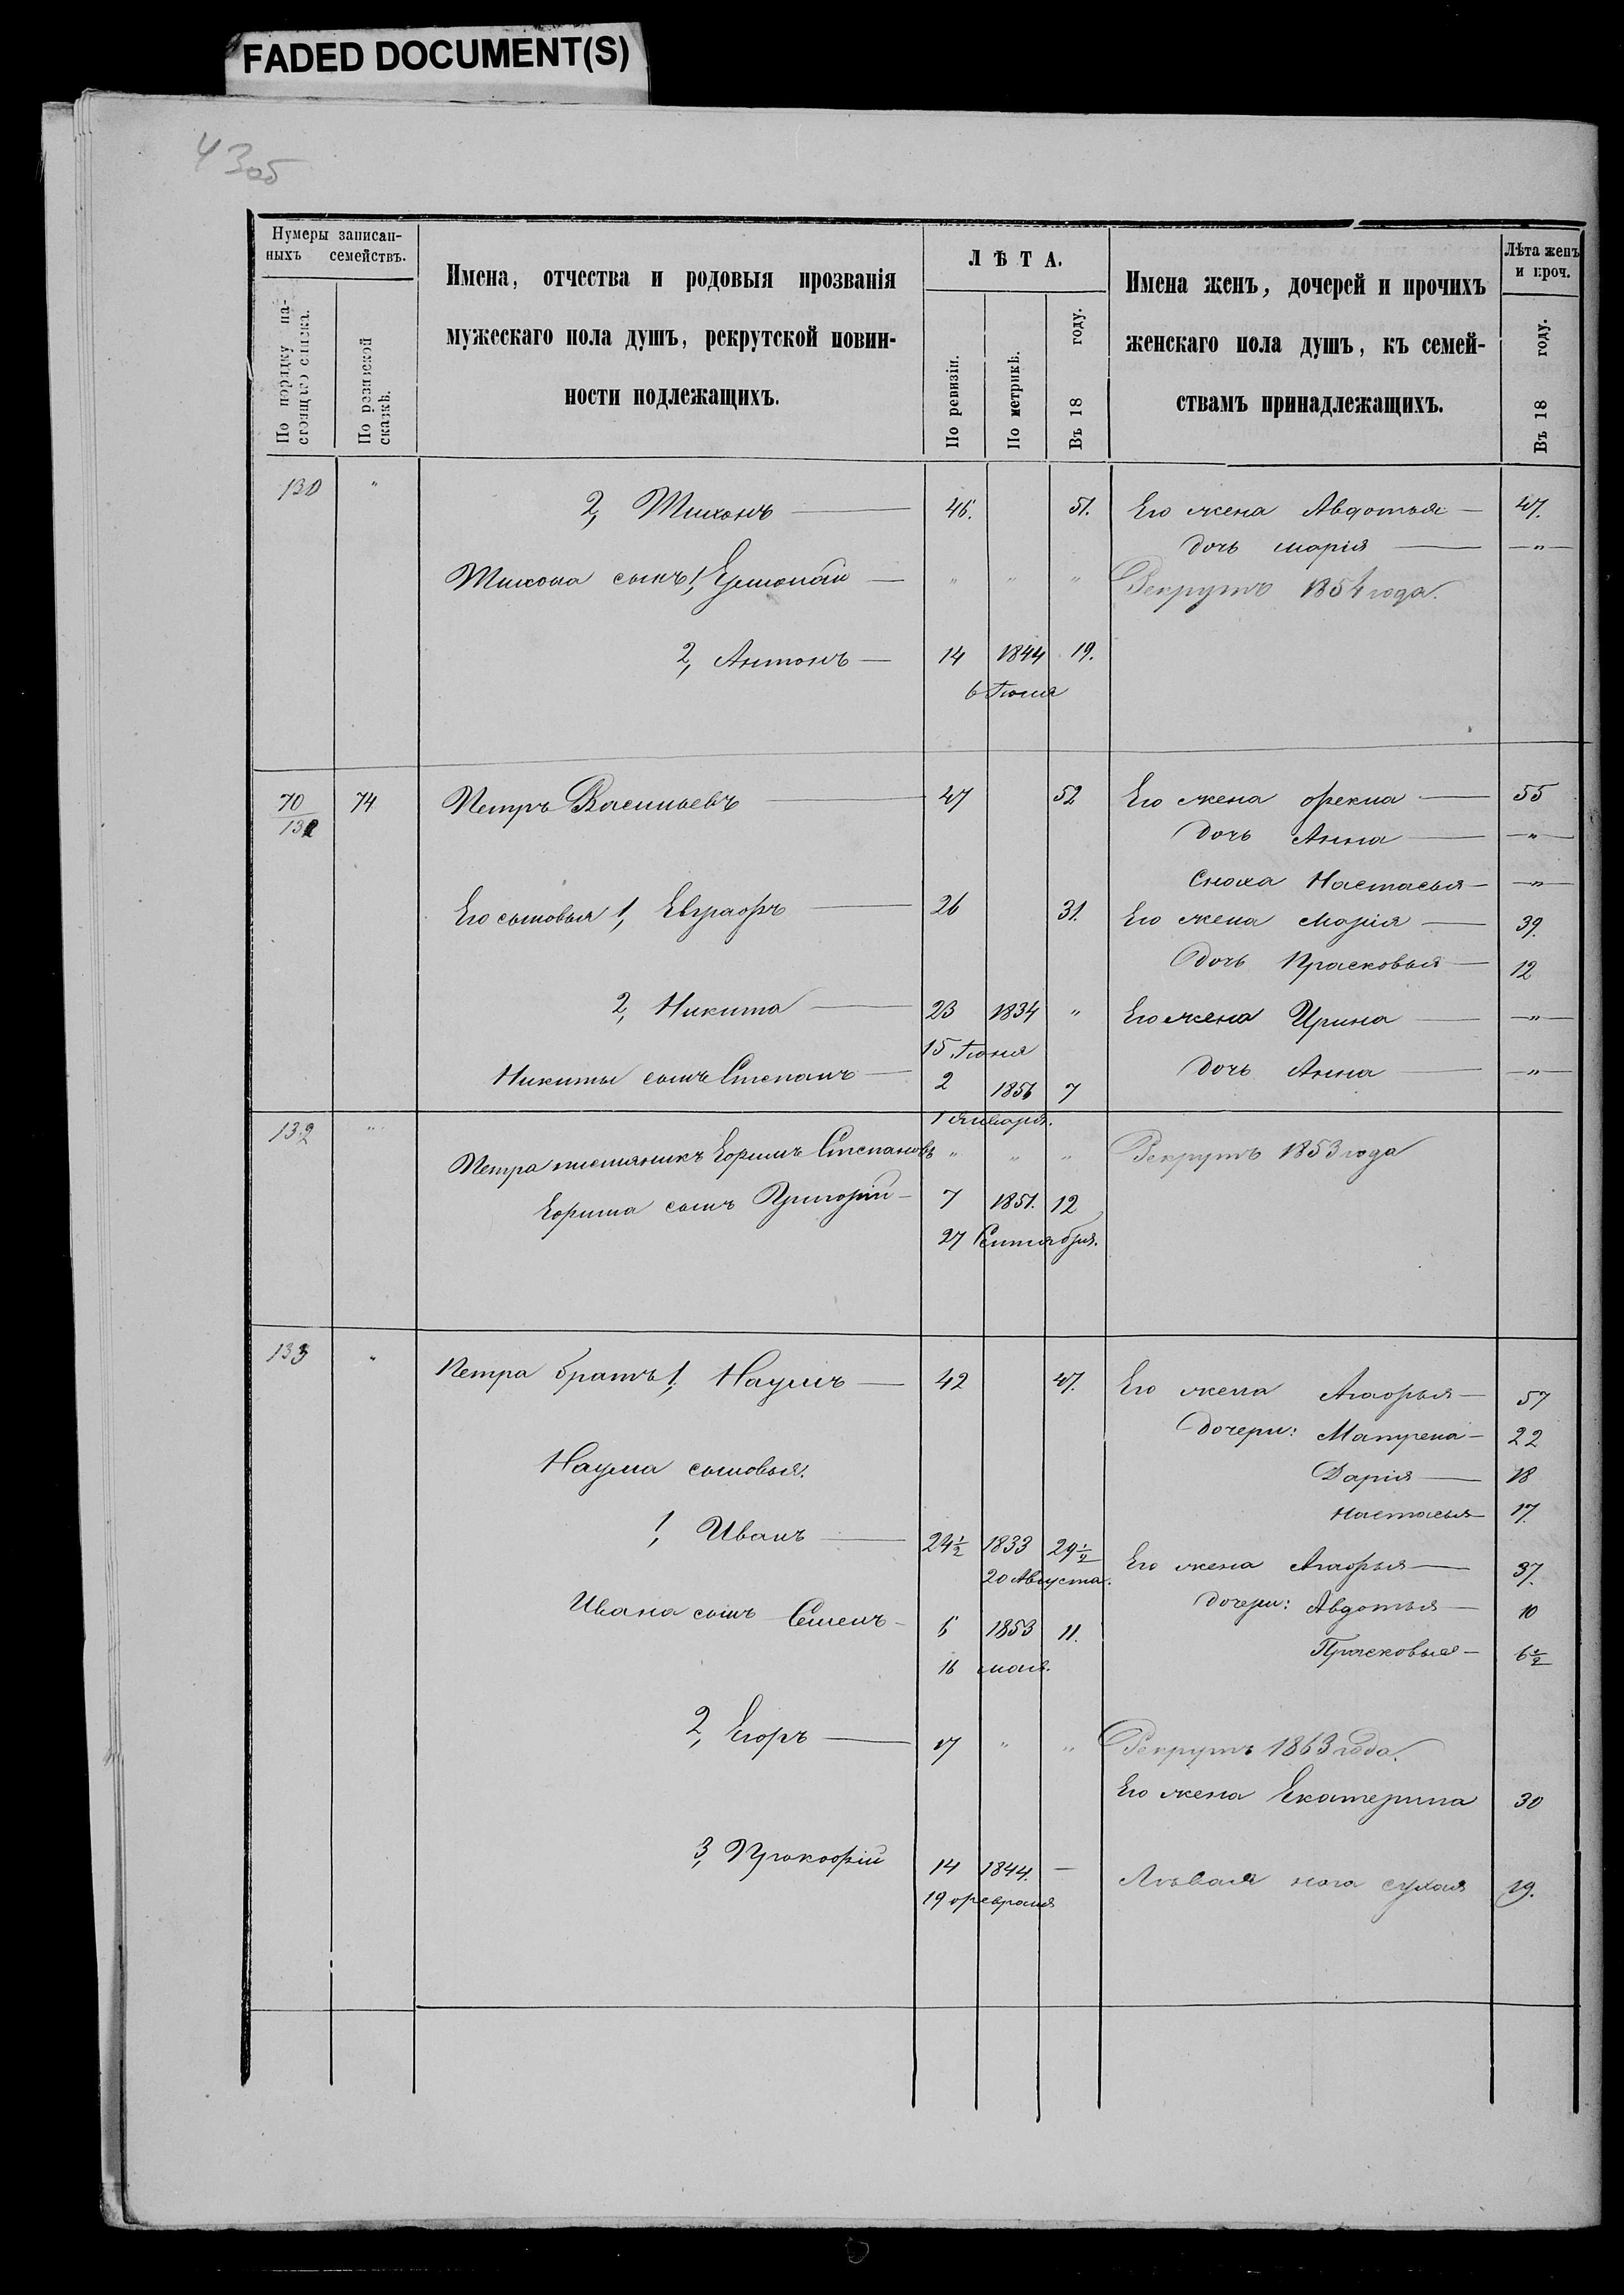 FADED DOCUMENT(S)
43об
Нумеры записан-
ныхъ семействъ.
По порядку на-
стоящаго списка.
По ревизской
сказкѣ.
Имена, отчества и родовыя прозванія
мужескаго пола душъ, рекрутской повин-
ности подлежащихъ.
ЛѢТА.
По ревизіи.
По метрикѣ.
Въ 18 году.
Имена женъ, дочерей и прочихъ
женскаго пола душъ, къ семей-
ствамъ принадлежащихъ.
Лѣта женъ
и проч.
Въ 18 году.
130 " 2, Тихонъ — 46. 51. Его жена Авдотья — 47.
дочь Марія — "
Тихона сынъ 1, — " " " Рекрутъ 1854 года.
2, Антонъ — 14 1844 19.
6 Іюня
70 74 Петръ Васильевъ — 47 52 Его жена Фекла — 55
131
дочь Анна — "
Сноха Настасья — "
Его сыновья 1, Евграфъ — 26 31. Его жена Марія — 39.
дочь Прасковья — 12
2, Никита — 23 1834 " Его жена Ирина — "
15 Іюня
Никиты сынъ Степанъ — 2 1856 7 дочь Анна — "
1 Января.
132 " Петра племянникъ Ефимъ Степановъ " " " Рекрутъ 1853 года
Ефима сынъ Григорій — 7 1851. 12
27 Сентября.
133 " Петра братъ 1, Наумъ — 42 47. Его жена Агафья — 57
дочери: Матрена — 22
Наума сыновья.
Дарія — 18
Настасья 17.
1, Иванъ — 24½ 1833 29½ Его жена Агафья — 37.
20 Августа.
Ивана сынъ Семенъ — 6 1853 11. дочери: Авдотья — 10
16 мая.
Прасковья — 6½
2, Егоръ — 17 " " Рекрутъ 1863 года.
Его жена Екатерина 30
3, Прокофій 14 1844. — Лѣвая нога сухая 19.
19 февраля